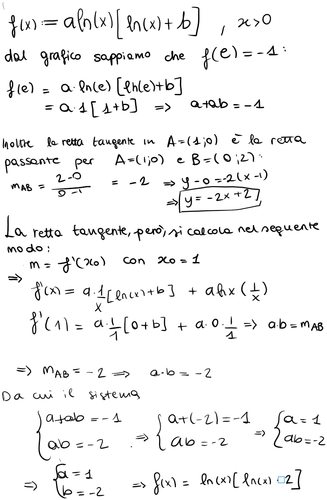 f(x) := a ln(x) [ln(x) + b] , x>0
dal grafico sappiamo che f(e) = -1 :
f(e) = a · ln(e) [ln(e) + b]
= a · 1 [1 + b] ⇒ a+ab = -1
Inoltre la retta tangente in A=(1;0) è la retta
passante per A=(1;0) e B=(0;2):
m_AB = (2-0)/(0-1) = -2 ⇒ y-0 = -2(x-1)
⇒ y = -2x+2
La retta tangente, però, si calcola nel seguente
modo:
m = f'(x0) con x0 = 1
⇒
f'(x) = a · 1/x [ln(x)+b] + a ln x (1/x)
f'(1) = a · 1/1 [0+b] + a · 0 · 1/1 ⇒ a·b = m_AB
⇒ m_AB = -2 ⇒ a·b = -2
Da cui il sistema
{a+ab = -1 ⇒ {a+(-2) = -1 ⇒ {a = 1
{ab = -2 {ab = -2 {ab = -2
⇒ {a = 1
{b = -2 ⇒ f(x) = ln(x) [ln(x) - 2]